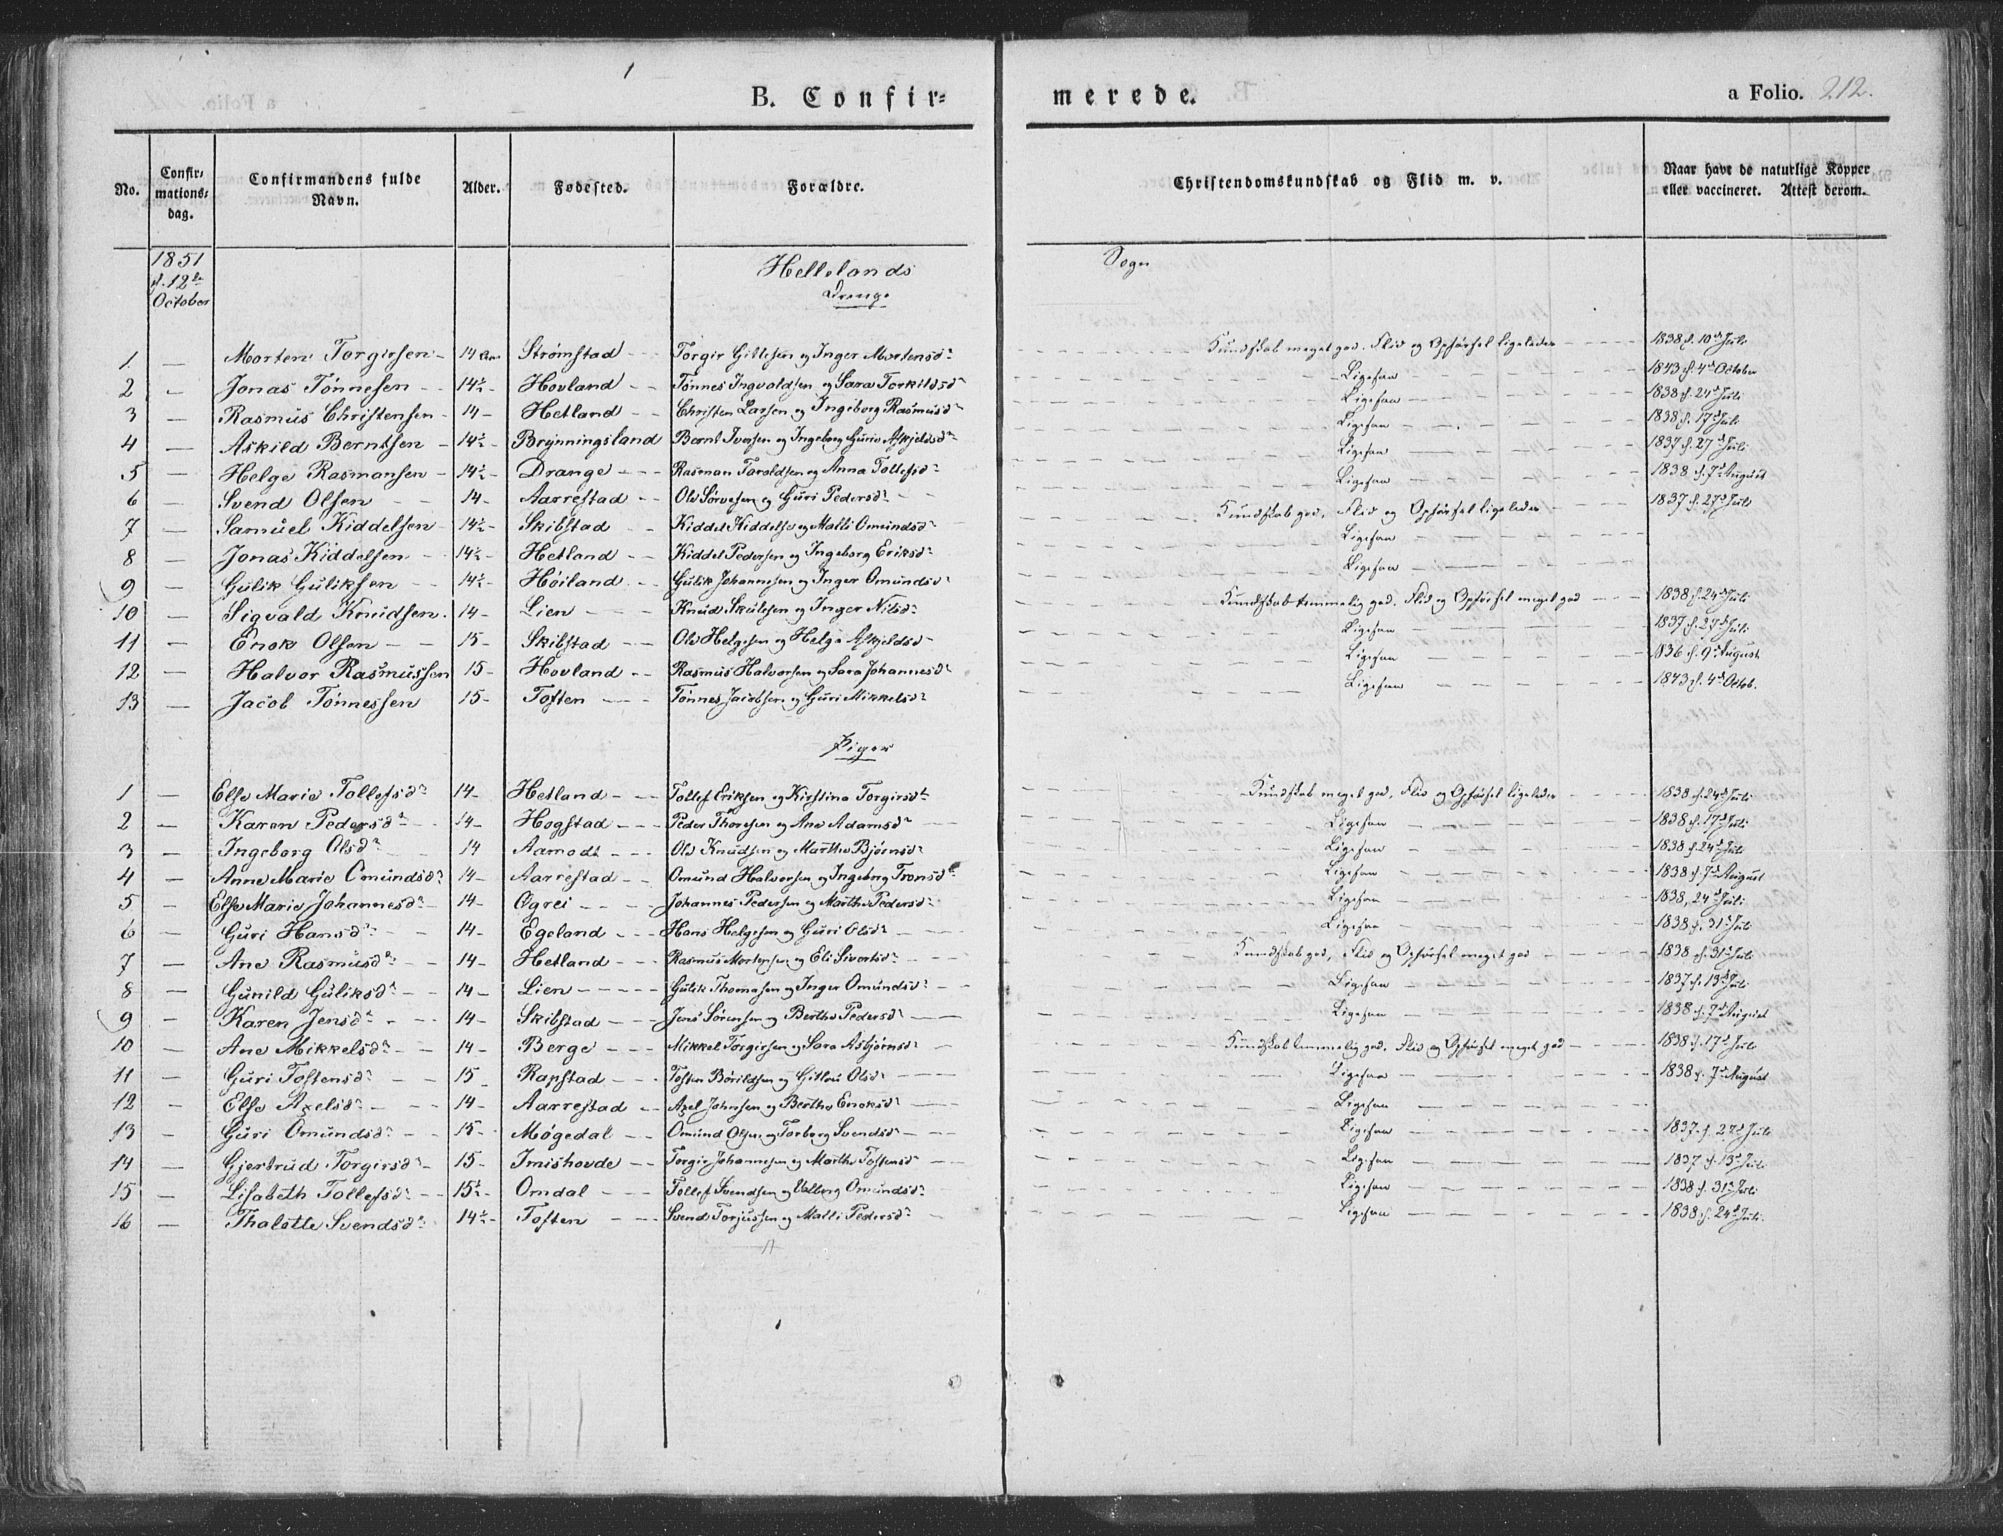 B. Confirmerede. a Folio. 212.
No. Confirmationsdag. Confirmandens fulde Navn. Alder. Fødested. Forældre. Christendomskundskab og Flid m. v. Naar have de naturlige Kopper eller vaccineret. Attest derom.
1851 d. 12te October
Hellelands Sogn
Drenge
1 — Morten Torgirsen 14 Strømstad Torgir Gittesen og Inger Mortensdr Kundskab meget god. Flid og Opførsel ligeledes 1838 d. 10d Juli
2 — Jonas Tønnesen 14½ Hovland Tønnes Ingvaldsen og Sara Torkildsdr Ligesaa 1843 d. 4d October
3 — Rasmus Christensen 14 Hetland Christen Larsen og Ingeborg Rasmusdr Ligesaa 1838 d. 24d Juli
4 — Askild Berntsen 14½ Brynningsland Bernt Iversen og Ingeborg Guria Askjeldsdr Ligesaa 1838 d. 17d Juli
5 — Helge Rasmansen 14½ Drange Rasman Taroldsen og Anna Tollefsdr Ligesaa 1837 d. 27d Juli
6 — Svend Olsen 14 Aarrestad Ole Sørvesen og Guri Pedersdr Ligesaa 1838 d. 7d August
7 — Samuel Kiddelsen 14½ Skibstad Kiddel Kiddelsen og Malli Omundsdr Kundskab god, Flid og Opførsel ligeledes 1837 d. 27d Juli
8 — Jonas Kiddelsen 14½ Hetland Kiddel Pedersen og Ingeborg Eriksdr Ligesaa
9 — Gulik Guliksen 14½ Høiland Gulik Johannesen og Inger Omundsdr Ligesaa
10 — Sigvald Knudsen 14 Lien Knud Skulesen og Inger Nilsdr Kundskab temmelig god. Flid og Opførsel meget god 1838 d. 24d Juli
11 — Enok Olsen 15 Skibstad Ole Helgesen og Helga Askjeldsdr Ligesaa 1837 d. 27d Juli
12 — Halvor Rasmussen 15 Hovland Rasmus Halvorsen og Sara Johannesdr Ligesaa 1836 d. 9d August
13 — Jacob Tønnessen 15 Toften Tønnes Jacobsen og Guri Mikkelsdr Ligesaa 1843 d. 4d Octob.
Piger
1 — Else Marie Tollefsdr 14 Hetland Tollef Eriksen og Kirstina Torgirsdr Kundskab meget god, Flid og Opførsel ligeledes 1838 d. 24d Juli
2 — Karen Pedersdr 14 Hogstad Peder Thoresen og Ane Adamsdr Ligesaa 1838 d. 17d Juli
3 — Ingeborg Olsdr 14 Aamodt Ole Knudsen og Marthe Bjørnsdr Ligesaa 1838 d. 24d Juli
4 — Anne Marie Omundsdr 14 Aarrestad Omund Halvorsen og Ingeborg Tronsdr Ligesaa 1838 d. 7d August
5 — Else Marie Johannesdr 14 Øgrei Johannes Pedersen og Marthe Pedersdr Ligesaa 1838, 24d Juli
6 — Guri Hansdr 14 Egeland Hans Helgesen og Guri Olsdr Ligesaa 1838 d. 31d Juli
7 — Ane Rasmusdr 14 Hetland Rasmus Mortensen og Eli Sivertsdr Kundskab god, Flid og Opførsel meget god 1838 d. 31d Juli
8 — Gunild Guliksdr 14 Lien Gulik Thomasen og Inger Omundsdr Ligesaa 1837 d. 13d Juli
9 — Karen Jensdr 14 Skibstad Jens Sørensen og Berthe Pedersdr Ligesaa 1838 d. 7d August
10 — Ane Mikkelsdr 14 Berge Mikkel Torgirsen og Sara Asbjørnsdr Kundskab temmelig god. Flid og Opførsel meget god 1838 d. 17d Juli
11 — Guri Tostensdr 15 Rapstad Tosten Børildsen og Gitlou Olsdr Ligesaa 1838 d. 7d August
12 — Else Axelsdr 14 Aarrestad Axel Johnsen og Berthe Enoksdr Ligesaa
13 — Guri Omundsdr 15 Møgedal Omund Olsen og Torborg Svendsdr Ligesaa 1837 d. 27d Juli
14 — Gjertrud Torgirsdr 15 Imishovde Torgir Johannesen og Marthe Tostensdr Ligesaa 1837 d. 13d Juli
15 — Lisabeth Tollefsdr 15½ Omdal Tollef Svendsen og Valborg Omundsdr Ligesaa 1838 d. 31d Juli
16 — Thalette Svendsdr 14½ Toften Svend Torjussen og Malli Pedersdr Ligesaa 1838 d. 24d Juli